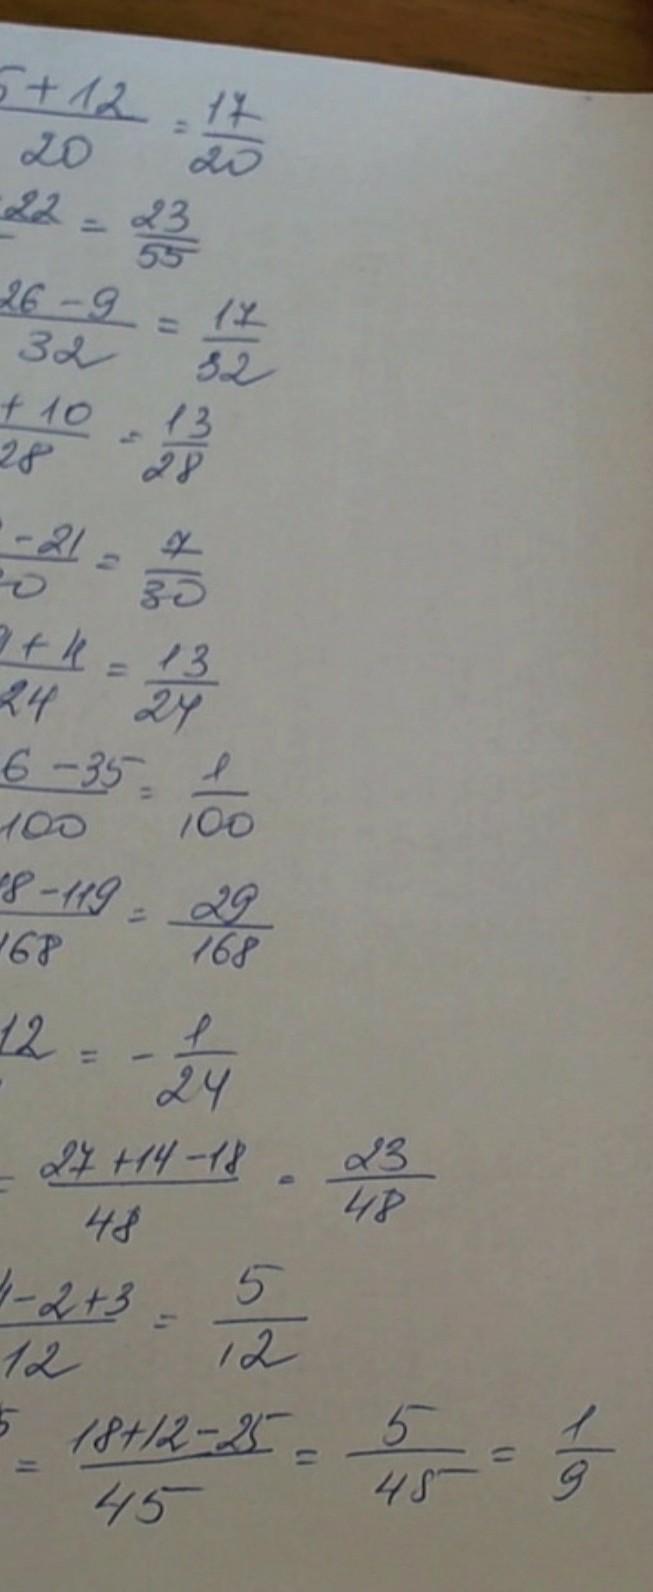 5+12/20 = 17/20
22 = 23/55
26-9/32 = 17/32
+10/28 = 13/28
-21/30 = 7/30
9+4/24 = 13/24
6-35/100 = 1/100
18-119/168 = 29/168
12 = -1/24
= 27+14-18/48 = 23/48
4-2+3/12 = 5/12
5 = 18+12-25/45 = 5/45 = 1/9